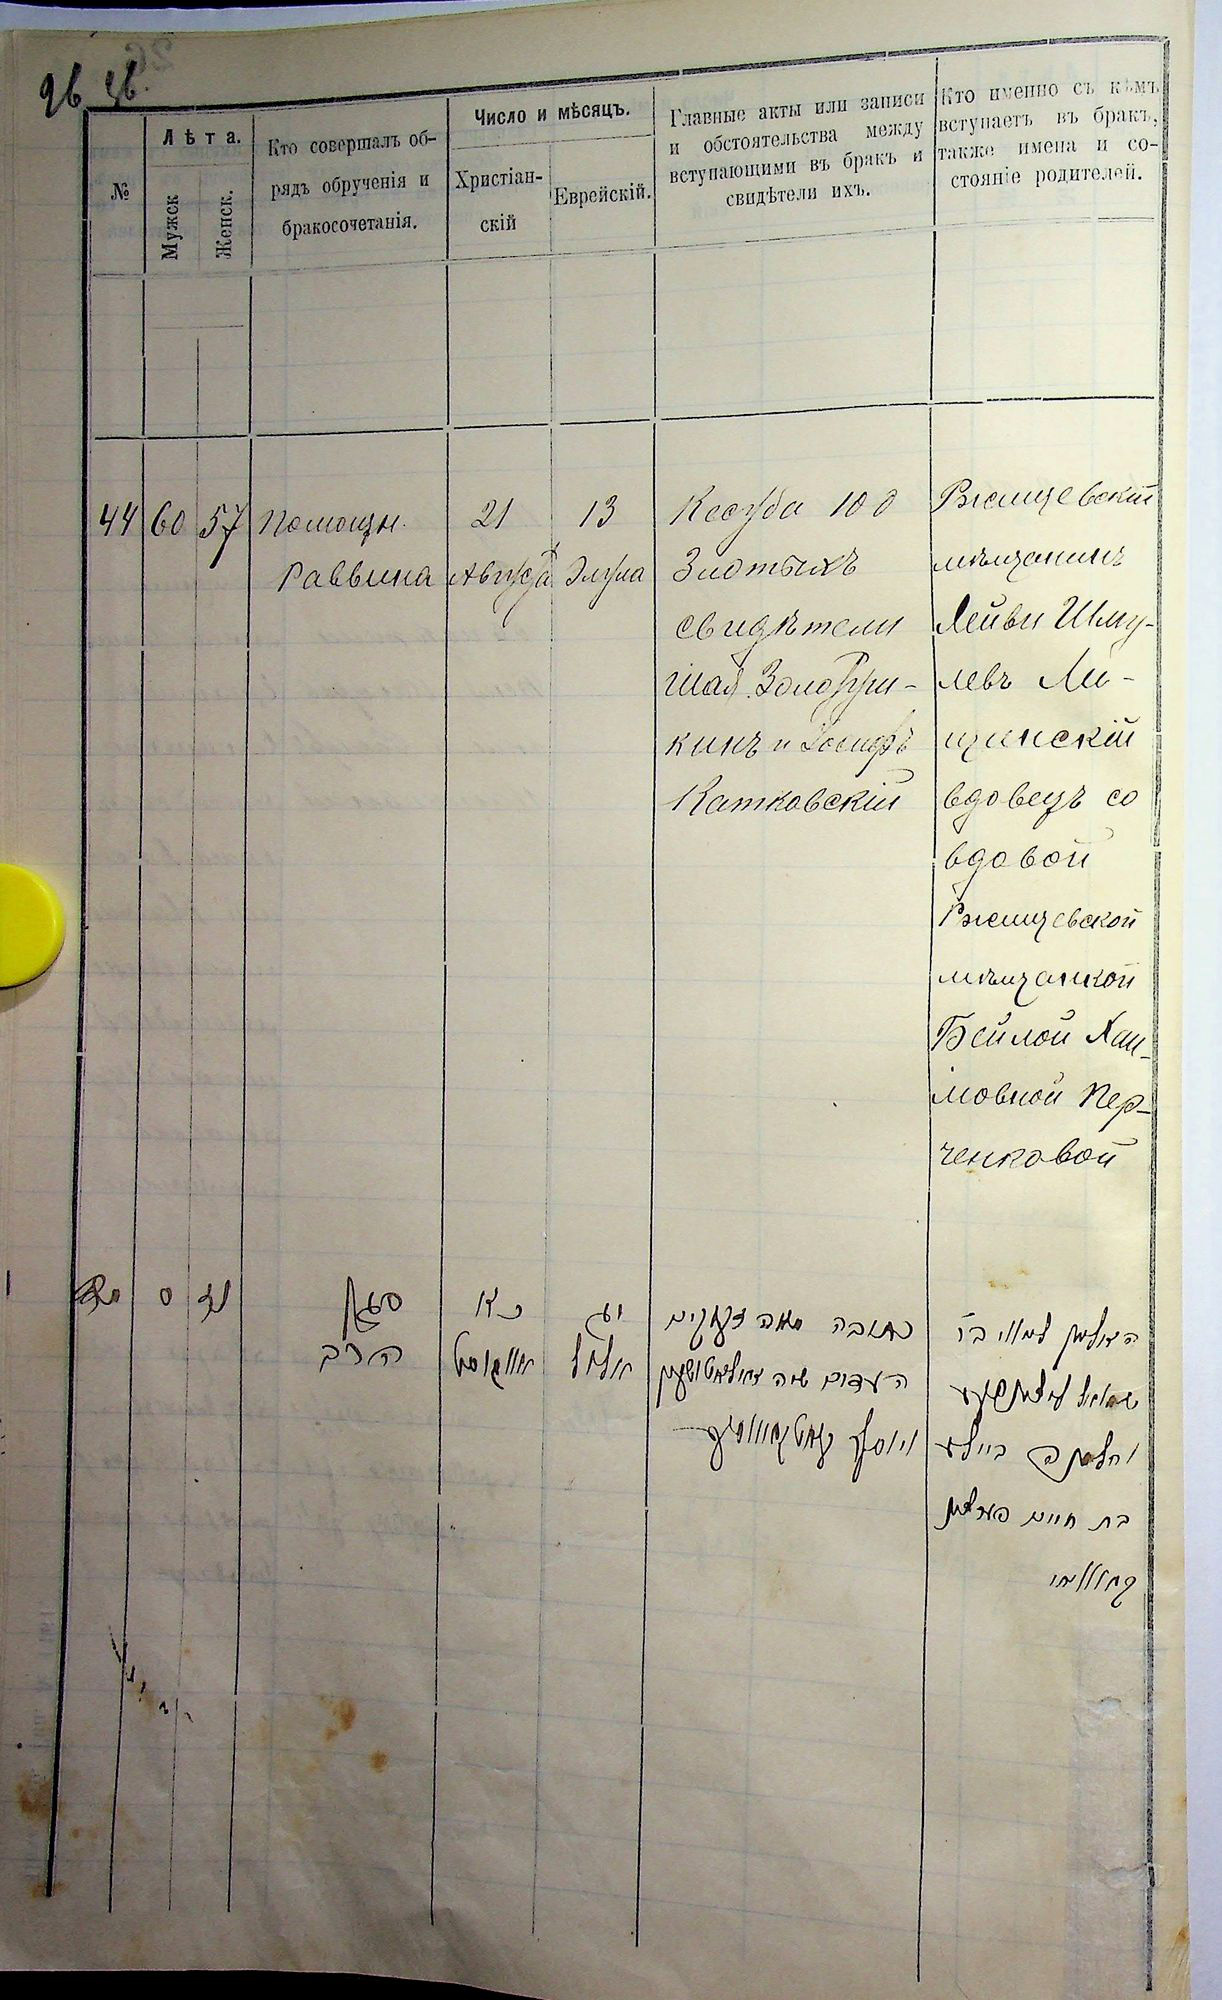 26
№
Лѣта.
Мужск
Женск.
Кто совершалъ об-
рядъ обрученія и
бракосочетанія.
Число и мѣсяцъ.
Христіан-
скій
Еврейскій.
Главные акты или записи
и обстоятельства между
вступающими въ бракъ и
свидѣтели ихъ.
Кто именно съ кѣмъ
вступаетъ въ бракъ,
также имена и со-
стояніе родителей.
44
60
57
Помощн.
Раввина
21
Августа
13
Элула
Кесуба 100
Злотыхъ
свидѣтели
Шая
кинъ и Іосифъ
Катковскій
Ржищевскій
мѣщанинъ
Лейви Шму-
левъ Ли-
щинскій
вдовецъ со
вдовой
Ржищевской
мѣщанкой
Бейлой Хаи-
мовной Пер-
ченковой
מד
ס
נז
סגן
הרב
כא
אווגוסט
יג
אלול
כתובה מאה זהובים
העדים
ויוסף
האלמן לייווי ב״ר
שמואל
והאלמנה ביילע
בת חיים